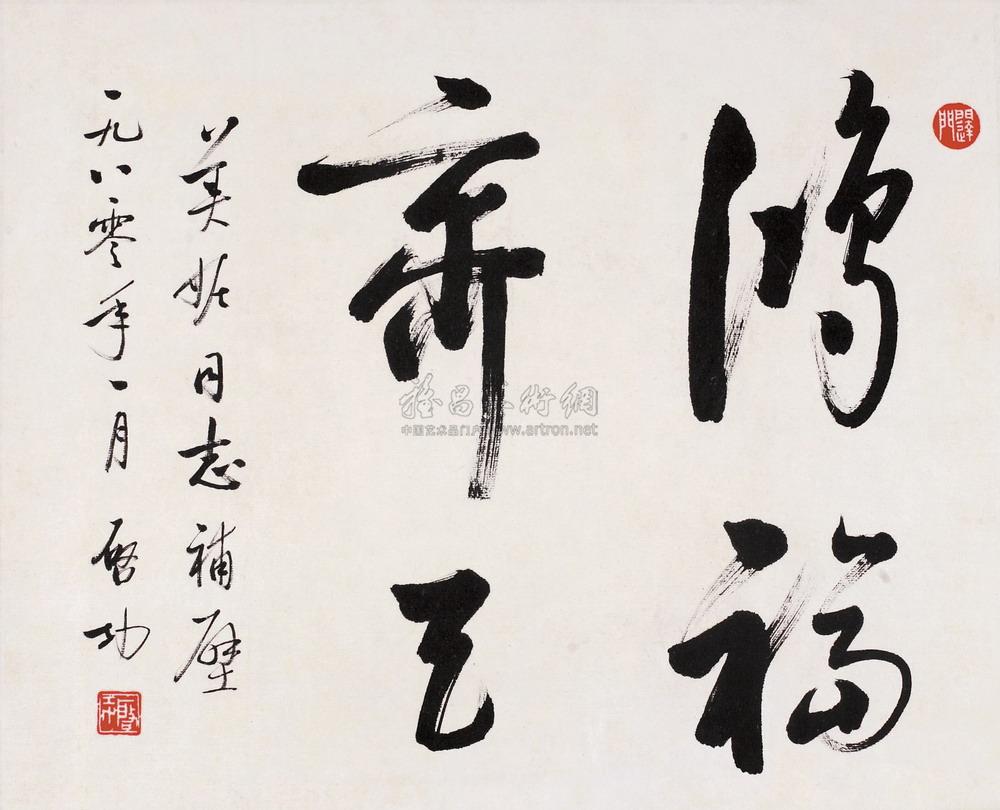 鸿福
齐天
美姙同志補壁
一九八零年一月 启功
雅昌艺术網
中国艺术品门户 www.artron.net